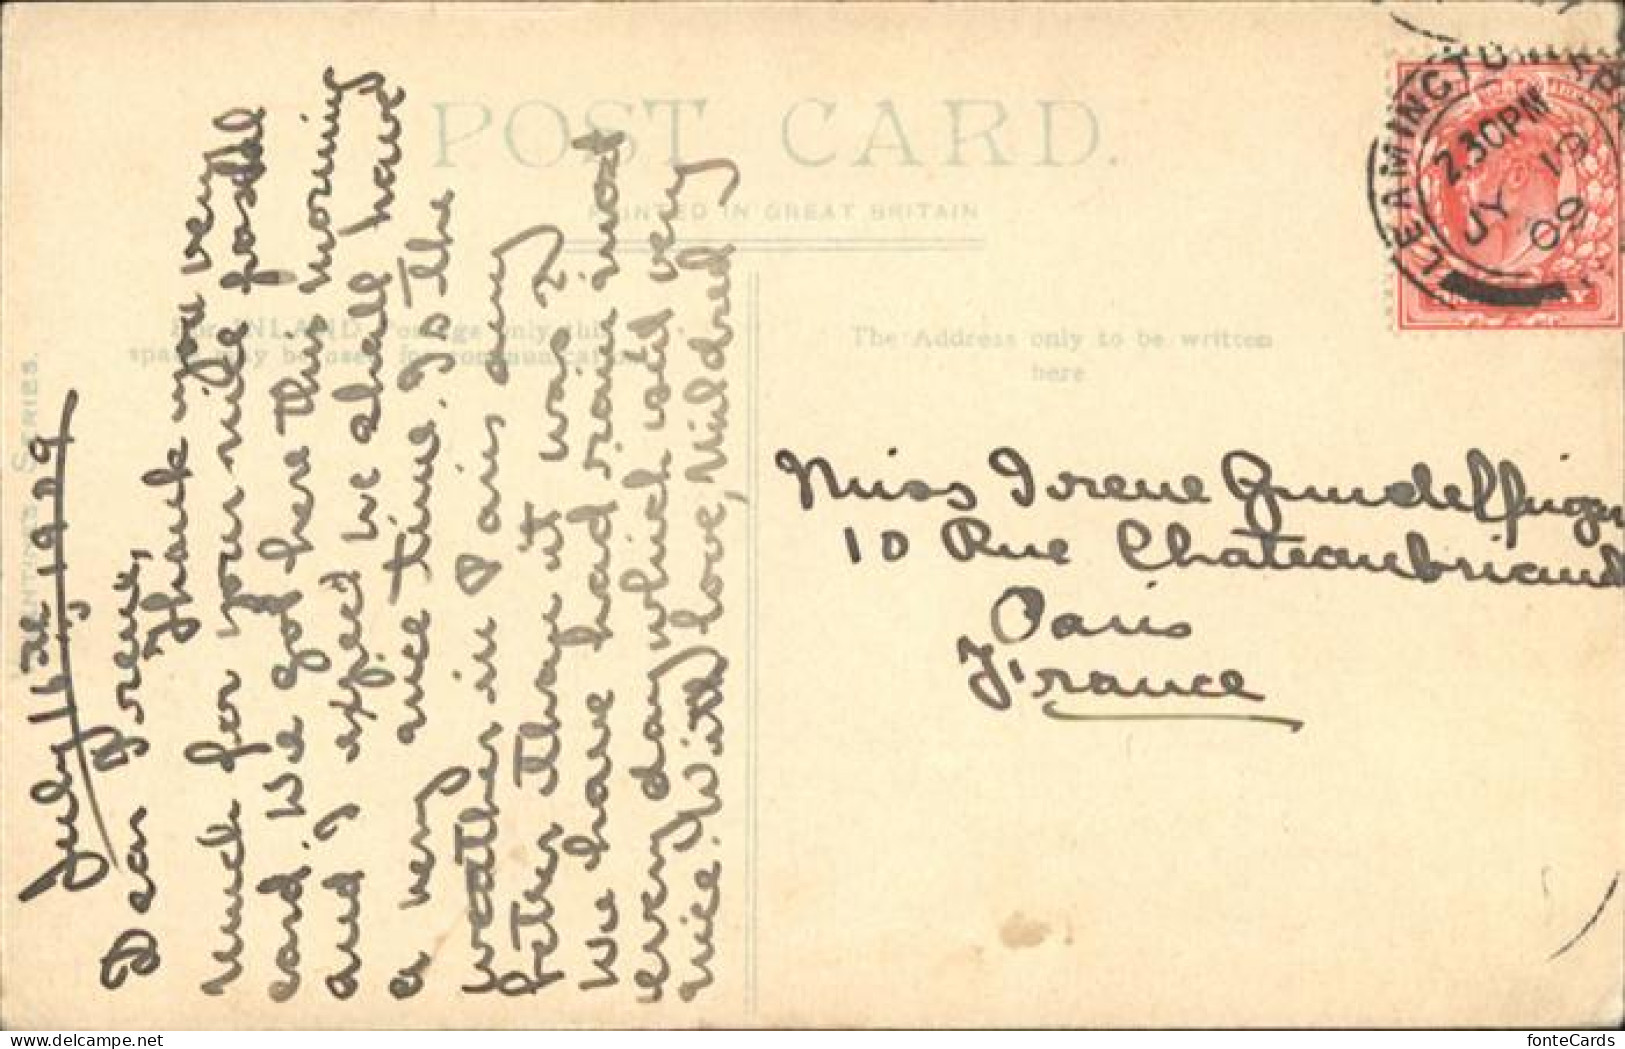 POST CARD.
PRINTED IN GREAT BRITAIN
For INLAND Postage only this
space may be used for communication
The Address only to be written
here
SERIES.
LEAMINGTON
2.30PM
JY 19
09
July 1909
Dear Irene,
Thank you very
much for your nice postal
card. We got here this morning
and I expect we shall have
a very nice time. Is the
weather in Paris any
better than it was?
We have had rain most
every day which isn't very
nice. With love, Mildred
Miss Irene
10 Rue Chateaubriand
Paris
France
fonteCards